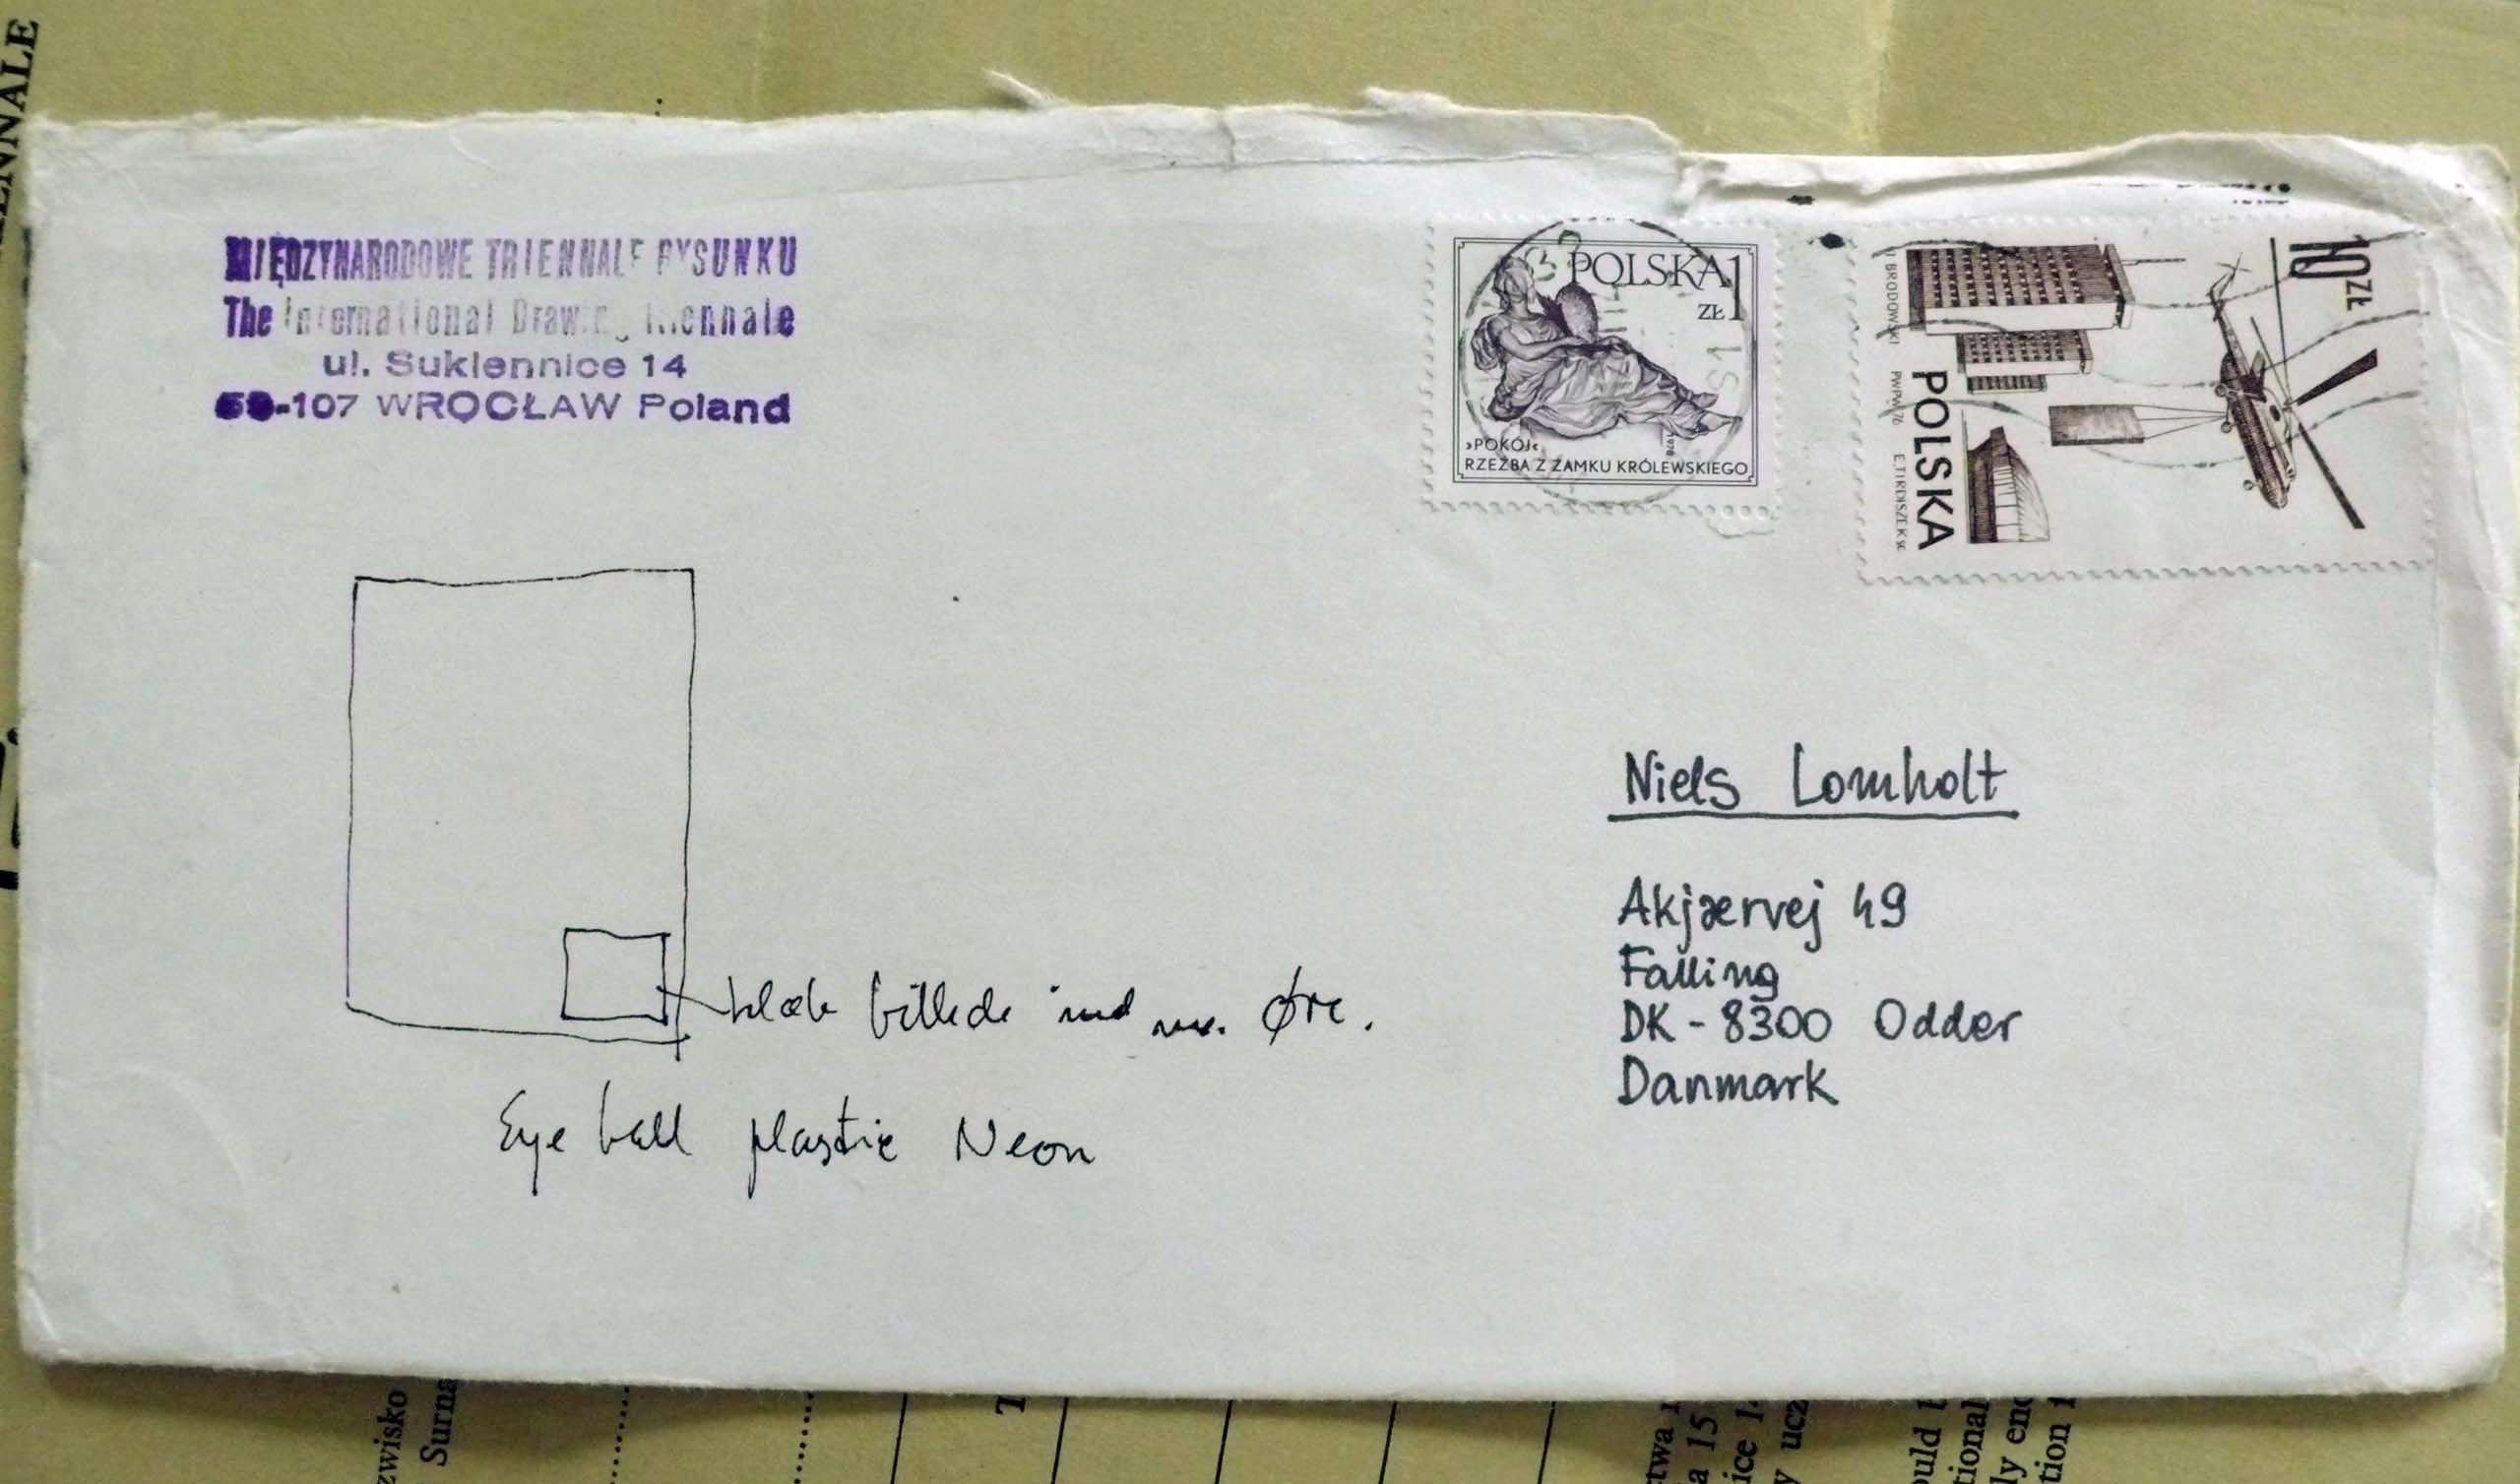 MIĘDZYNARODOWE TRIENNALE RYSUNKU
The International Drawing Triennale
ul. Sukiennice 14
-107 WROCŁAW Poland
POLSKA 1
ZŁ
1978
›POKÓJ‹
RZEŹBA Z ZAMKU KRÓLEWSKIEGO
10 ZŁ
POLSKA
BRODOWSKI PWPW 76 E.TIRDISZEK SC.
Niels Lomholt
Akjærvej 49
Falling
DK - 8300 Odder
Danmark
billede ind Øre.
Eye ball plastic Neon
ENNALE
zwisko
Surna
T
twa
a 15
ice 14
y ucz
ould
tional
ly enc
tion